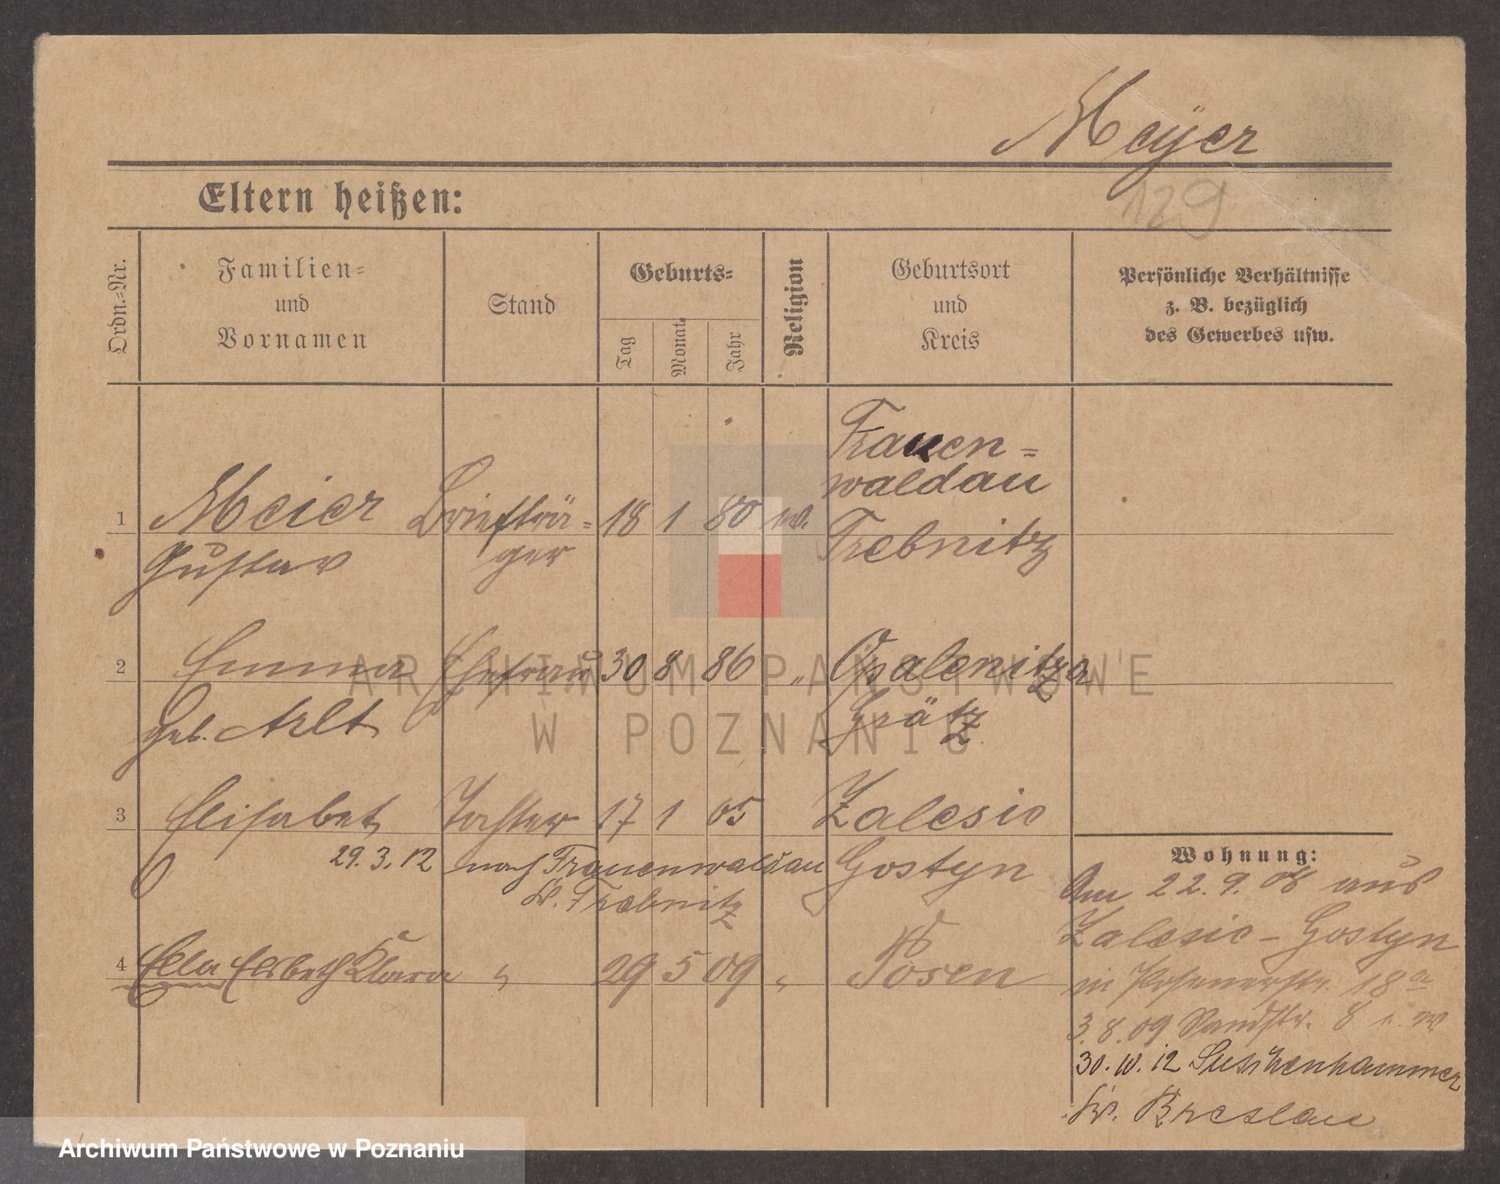 Meÿer
129
Eltern heißen:
Ordn.-Nr.
Familien-
und
Vornamen
Stand
Geburts-
Tag
Monat
Jahr
Religion
Geburtsort
und
Kreis
Persönliche Verhältnisse
z. B. bezüglich
des Gewerbes usw.
Frauen-
waldau
1 Meier Briefträ- 18 1 80 Trebnitz
Gustav ger
2 Emma Ehefrau 30 8 86 " Opalenitza
geb. Arlt Grätz
3 Elisabet Tochter 17 1 05 Zalesie
29.3.12 nach Frauenwaldau Gostyn
Kr. Trebnitz
4 Ella Elsbeth Klara " 29 5 09 " Posen
Wohnung:
Am 22.9.08 aus
Zalesie - Gostyn
in Posenerstr. 18a
3.8.09 Sandstr. 8
30.10.12 Suschenhammer
Kr. Breslau
ARCHIWUM PAŃSTWOWE
W POZNANIU
Archiwum Państwowe w Poznaniu